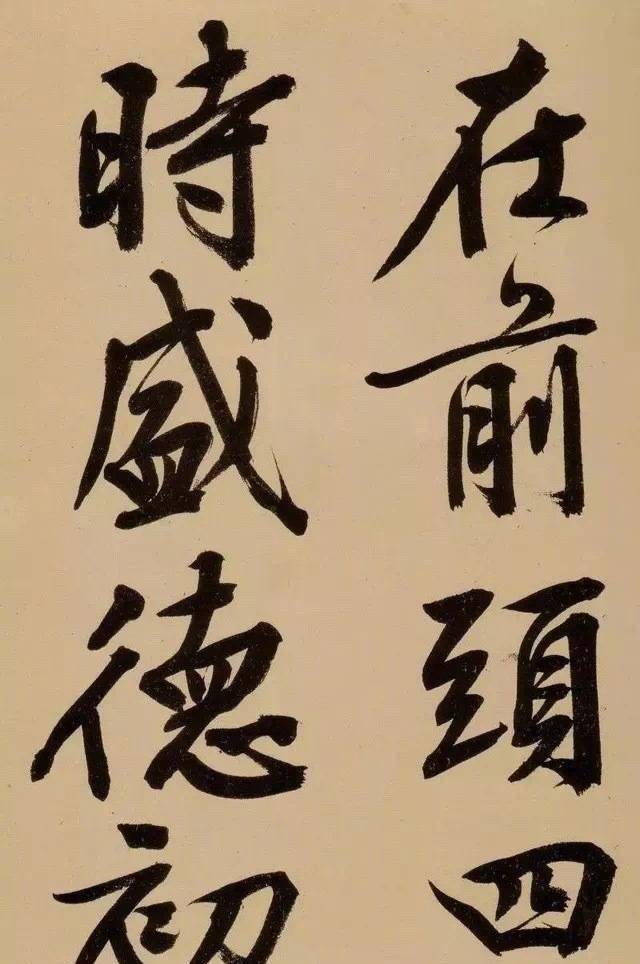 在前頭四
時盛德初